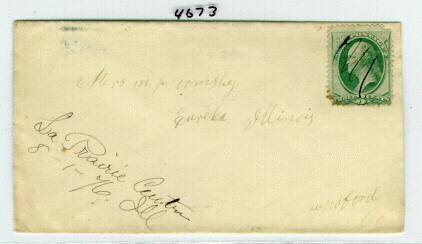 4673
Mrs m p ormsby
Eureka Illinois
La Prairie Center
8-1-76. Ill
woodford